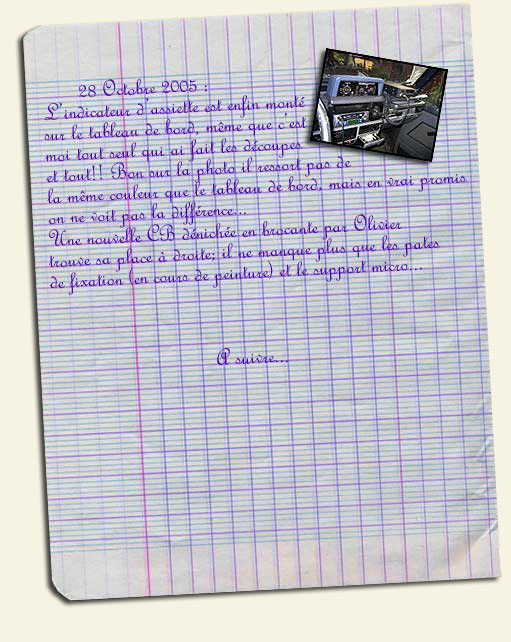 28 Octobre 2005 :
L'indicateur d'assiette est enfin monté
sur le tableau de bord, même que c'est
moi tout seul qui ai fait les découpes
et tout!! Bon sur la photo il ressort pas de
la même couleur que le tableau de bord, mais en vrai promis
on ne voit pas la différence...
Une nouvelle CB dénichée en brocante par Olivier
trouve sa place à droite; il ne manque plus que les pates
de fixation (en cours de peinture) et le support micro...
A suivre...